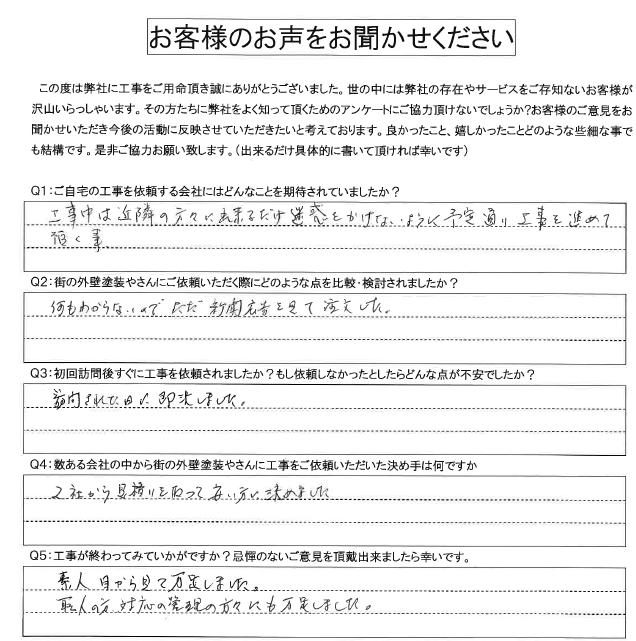 お客様のお声をお聞かせください
この度は弊社に工事をご用命頂き誠にありがとうございました。世の中には弊社の存在やサービスをご存知ないお客様が
沢山いらっしゃいます。その方たちに弊社をよく知って頂くためのアンケートにご協力頂けないでしょうか?お客様のご意見をお
聞かせいただき今後の活動に反映させていただきたいと考えております。良かったこと、嬉しかったことどのような些細な事で
も結構です。是非ご協力お願い致します。(出来るだけ具体的に書いて頂ければ幸いです)
Q1:ご自宅の工事を依頼する会社にはどんなことを期待されていましたか?
工事中は近隣の方々に出来るだけ迷惑をかけないように予定通り工事を進めて
頂く事
Q2:街の外壁塗装やさんにご依頼いただく際にどのような点を比較・検討されましたか?
何もわからないのでただ新聞広告を見て注文した。
Q3:初回訪問後すぐに工事を依頼されましたか?もし依頼しなかったとしたらどんな点が不安でしたか?
訪問された日に即決しました。
Q4:数ある会社の中から街の外壁塗装やさんに工事をご依頼いただいた決め手は何ですか
2社から見積りを取って安い方に決めました
Q5:工事が終わってみていかがですか?忌憚のないご意見を頂戴出来ましたら幸いです。
素人目から見て万足しました。
職人の方対応の管理の方々にも万足しました。